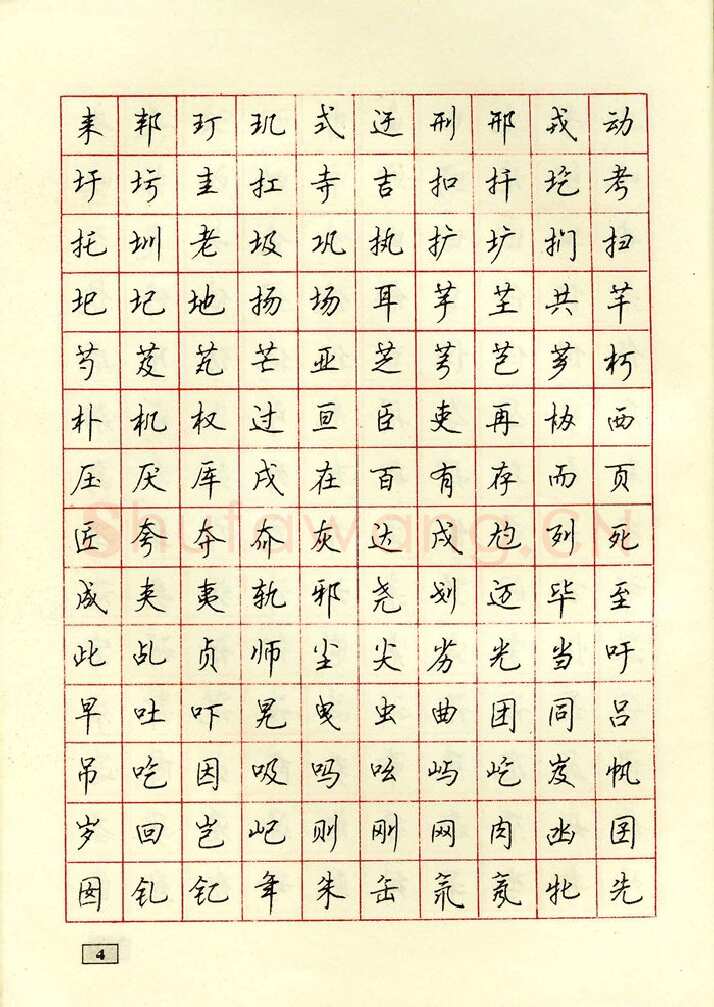 耒 邦 玎 玑 式 迂 刑 邢 戎 动
圩 圬 圭 扛 寺 吉 扣 扞 圪 考
托 圳 老 圾 巩 执 扩 圹 扪 扫
圯 圮 地 扬 场 耳 芋 芏 共 芊
芍 芨 芄 芒 亚 芝 芎 芑 芗 朽
朴 机 权 过 亘 臣 吏 再 协 西
压 厌 厍 戌 在 百 有 存 而 页
匠 夸 夺 夼 灰 达 戍 尥 列 死
成 夹 夷 轨 邪 尧 划 迈 毕 至
此 乩 贞 师 尘 尖 劣 光 当 吁
早 吐 吓 晃 曳 虫 曲 团 同 吕
吊 吃 因 吸 吗 吆 屿 屹 岌 帆
岁 回 岂 屺 则 刚 网 肉 凼 囝
囡 钆 钇 年 朱 缶 氘 氖 牝 先
4
Shufawang.CN